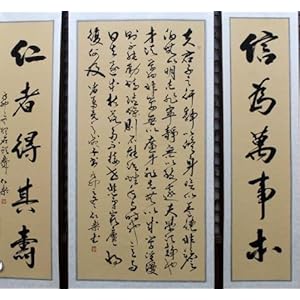 信為萬事本
夫君子之行靜以修身儉以養德非澹
泊無以明志非寧靜無以致遠夫學須靜也
才須學也非學無以廣才非志無以成學慆慢
則不能勵精險躁則不能冶性年與時馳意與
日去遂成枯落多不接世悲守窮廬將
復何及
仁者得其壽